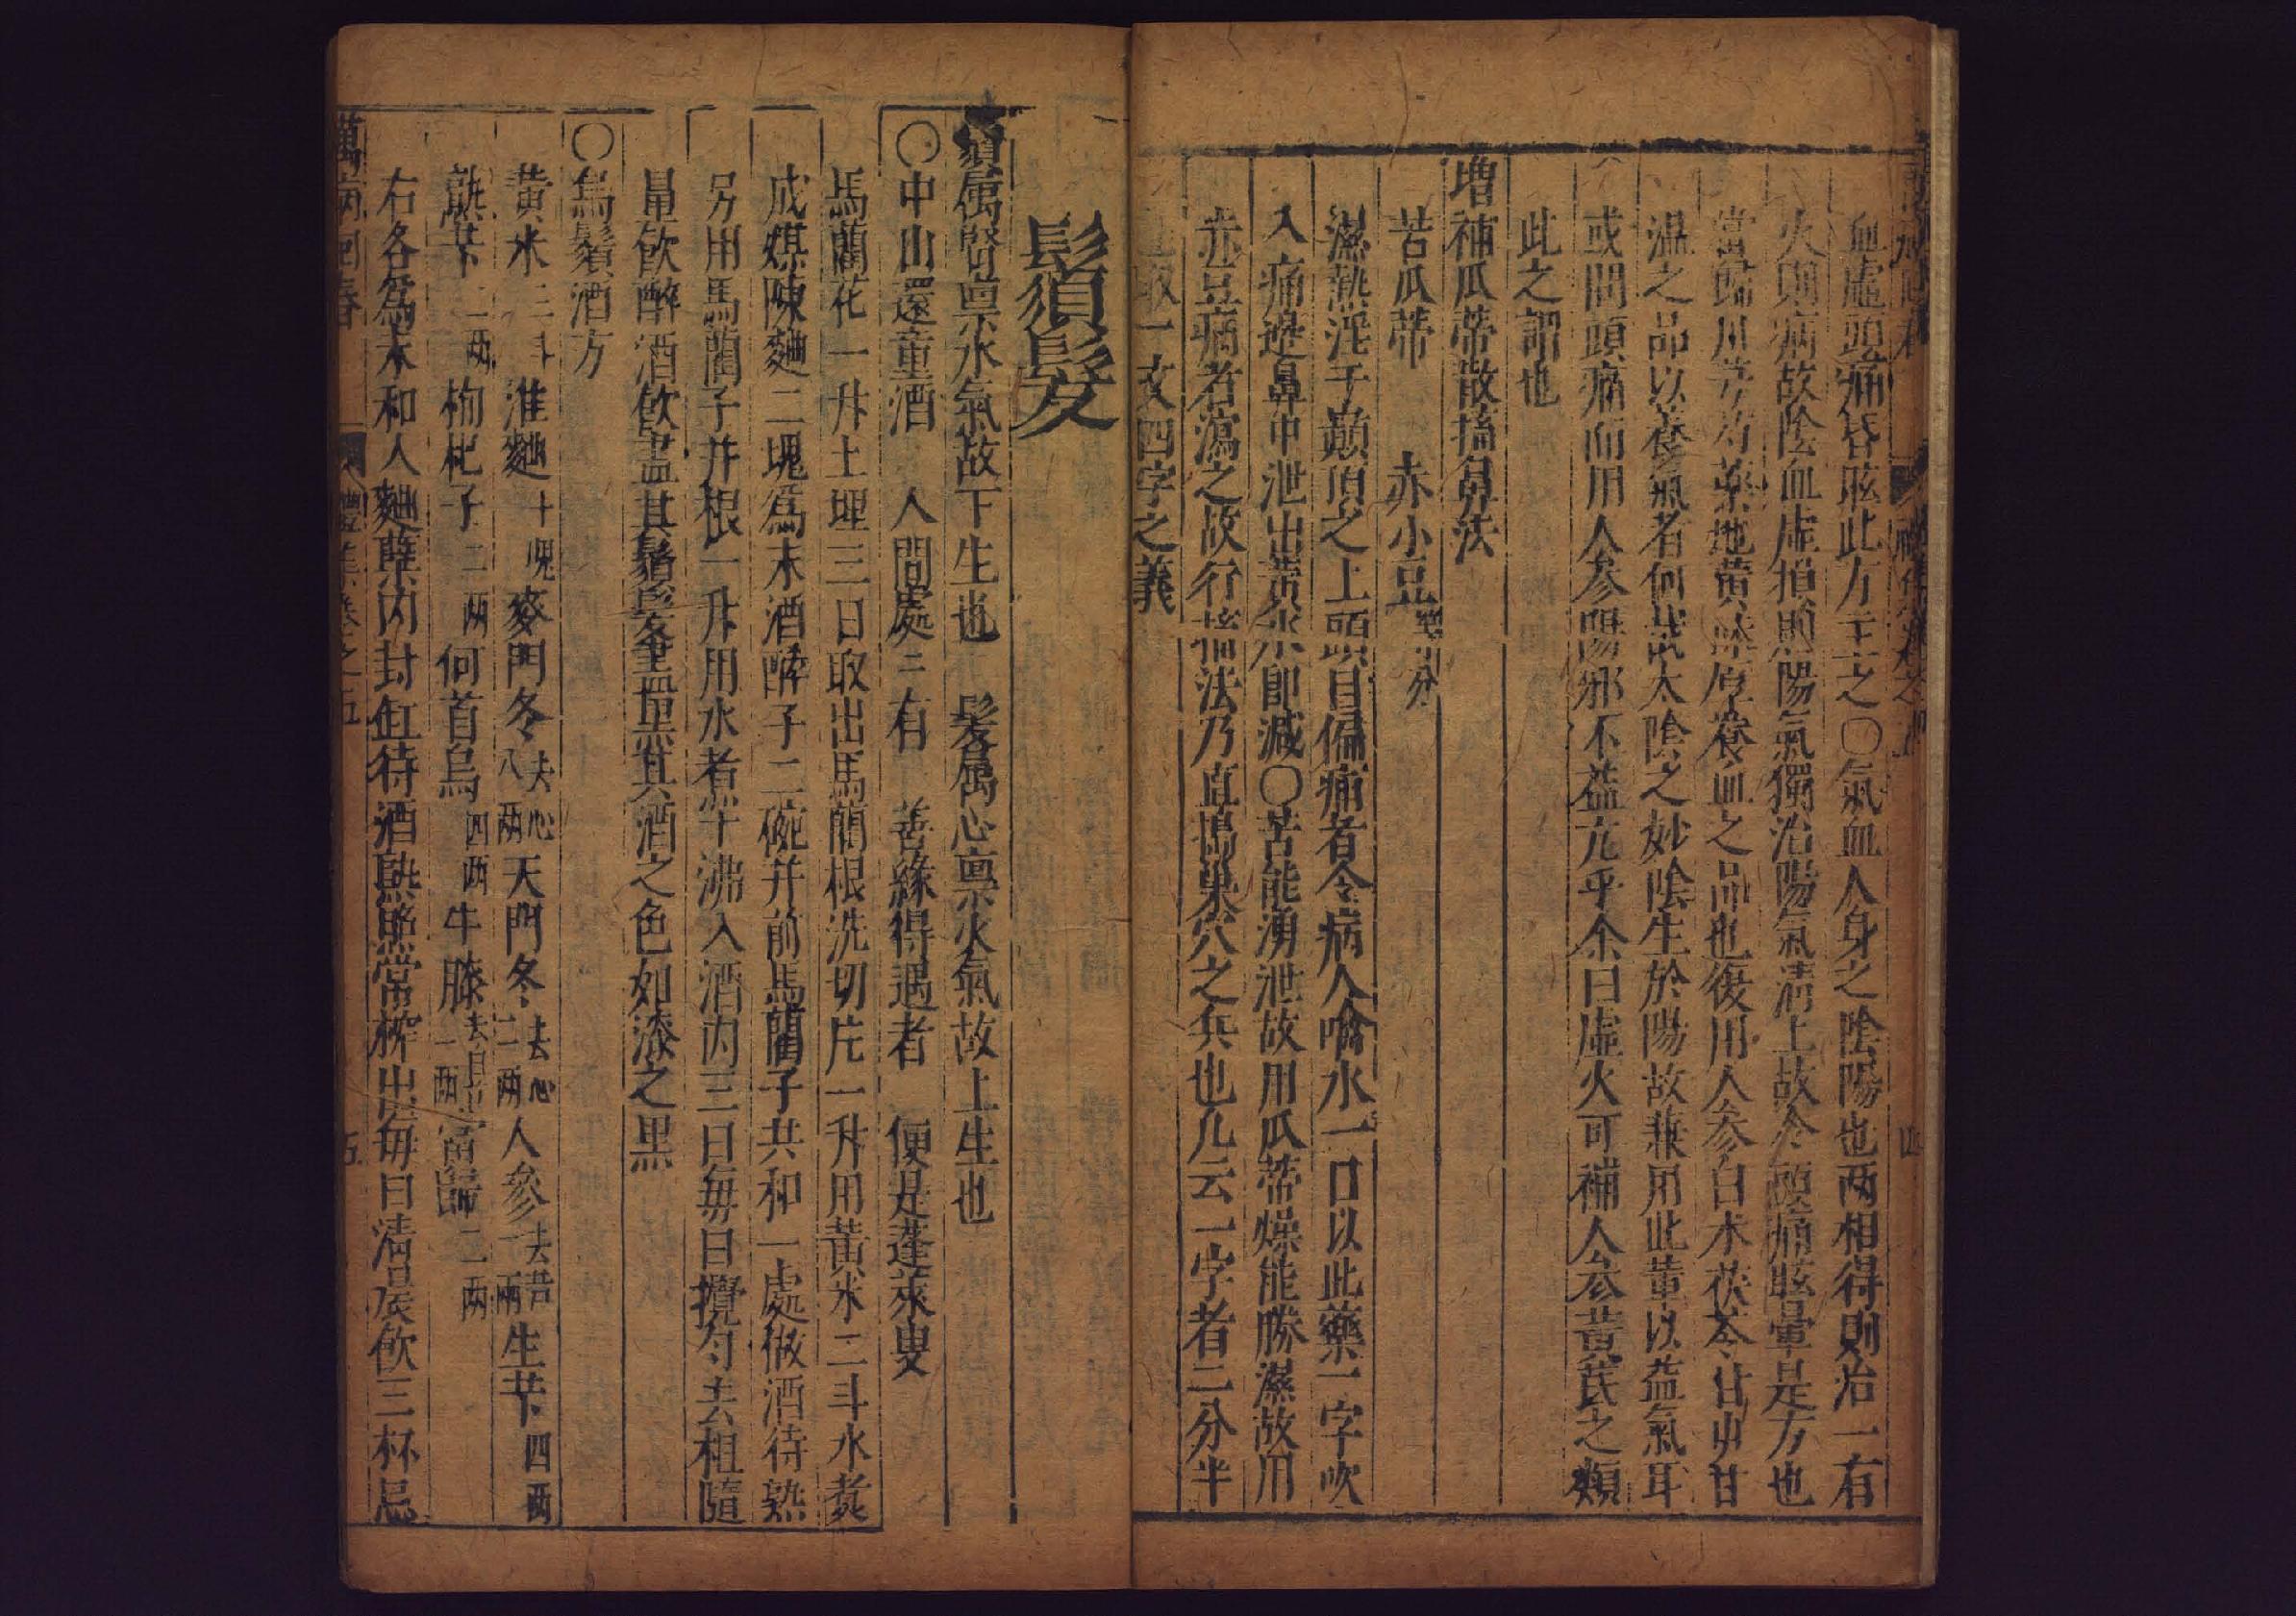 血虛頭痛昏眩此方主之○氣血人身之陰陽也两相得則治一有
火則病故陰血虛損則陽氣獨治陽氣清上故令頭痛眩暈是方也
當歸川芎芍藥地黄味厚養血之品也復用人参白术茯苓甘草甘
温之品以養氣者何哉太陰之妙陰生於陽故兼用此輩以益氣耳
或問頭痛而用人参陽邪不益亢乎余曰虛火可補人参黃芪之類
此之謂也
増補瓜蒂散搐鼻法
苦瓜蒂 赤小豆 分
濕熱淫于巔頂之上頭目偏痛者令病人噙水一口以此藥一字吹
入痛邉鼻中泄出黃水即減○苦能湧泄故用瓜蒂燥能勝濕故用
赤豆病者瀉之故行搐法乃直搗巢穴之兵也凡云一字者二分半
取一文四字之義
鬚髮
鬚属腎禀水氣故下生也 髮属心禀火氣故上生也
○中山還童酒 人間處三有 善緣得遇者 便是蓬萊叟
馬藺花一升土埋三日取出馬藺根洗切片一升用黃米二斗水煑
成媒陳麯二塊爲末酒酵子二碗并前馬藺子共和一處做酒待熟
另用馬藺子并根一升用水煮十沸入酒内三日每日攪勻去柤隨
量飲醉酒飲盡其鬚髮盡黑其酒之色如漆之黑
○烏鬚酒方
黄米三斗 淮麯十塊 麥門冬去心八兩 天門冬去心二兩 人參去芦一兩 生芐四两
熟芐二两 枸杞子二两 何首烏四两 牛膝去芦一兩 當歸二两
右各爲末和入麯糵内封缸待酒熟照常榨出每日清晨飲三杯忌
萬病回春 禮集卷之五 五